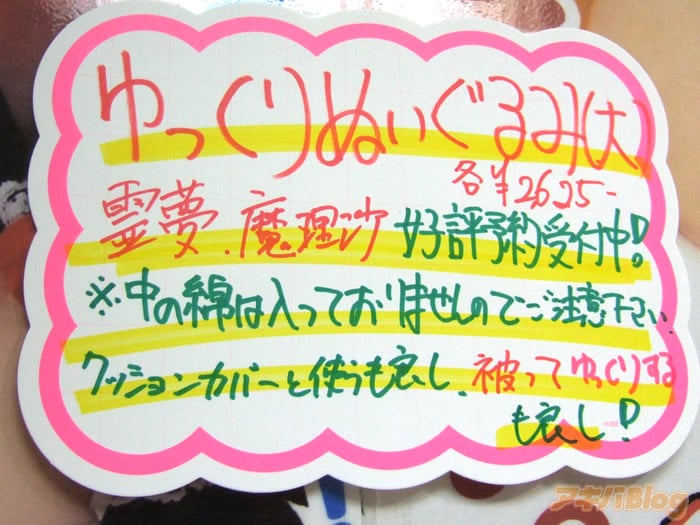 ゆっくりぬいぐるみ(大)
各¥2625-
霊夢、魔理沙 好評予約受付中!
※中の綿は入っておりませんのでご注意下さい
クッションカバーと使うも良し、被ってゆっくりする
も良し!
アキバBlog